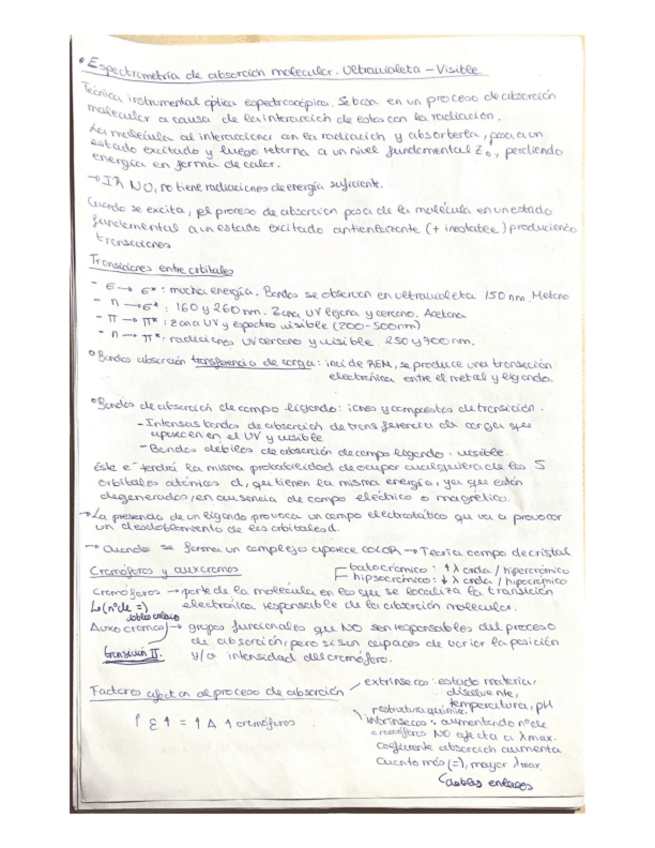 • Espectrometría de absorción molecular. Ultravioleta - Visible.
Técnica instrumental óptica espectroscópica. Se basa en un proceso de absorción
molecular a causa de la interacción de estas con la radiación.
La molécula al interaccionar con la radiación y absorberla, pasa a un
estado excitado y luego retorna a un nivel fundamental Z₀, perdiendo
energía en forma de calor.
→ IR NO, no tiene radiaciones de energía suficiente.
Cuando se excita, el proceso de absorción pasa de la molécula en un estado
fundamental a un estado excitado antienlazante (+ inestable) produciendo
transiciones
Transiciones entre orbitales
- σ → σ*: mucha energía. Bandas se observan en ultravioleta 150 nm. Metano
- n → σ*: 160 y 260 nm. Zona UV lejana y cercano. Acetona
- π → π*: zona UV y espectro visible (200-500nm)
- n → π*: radiaciones UV cercano y visible. 250 y 700 nm.
° Bandas absorción transferencia de carga: inci de REM, se produce una transición
electrónica entre el metal y ligando.
° Bandas de absorción de campo ligando: iones y compuestos de transición.
- Intensas bandas de absorción de transferencia de carga que
aparecen en el UV y visible
- Bandas débiles de absorción de campo ligando: visible.
Este e⁻ tendrá la misma probabilidad de ocupar cualquiera de los 5
orbitales atómicos d, que tienen la misma energía, ya que están
degenerados, en ausencia de campo eléctrico o magnético.
→ La presencia de un ligando provoca un campo electrostático que va a provocar
un desdoblamiento de los orbitales d.
→ Cuando se forma un complejo aparece COLOR → Teoría campo de cristal
Cromóforos y auxocromos
batocrómico: ↑ λ onda / hipercrómico
hipsocrómico: ↓ λ onda / hipocrómico
Cromóforos → parte de la molécula en los que se localiza la transición
↳ (nº de =) electrónica responsable de la absorción molecular.
dobles enlaces
Auxocromos → grupos funcionales que NO son responsables del proceso
de absorción, pero si son capaces de variar la posición
transición π. y/o intensidad del cromóforo.
Factores afectan al proceso de absorción
extrínsecos: estado materia,
disolvente,
temperatura, pH
restructura química
intrínsecos: aumentando nº de
cromóforos NO afecta a λ max.
coeficiente absorción aumenta
Cuanto más (=), mayor λ max.
dobles enlaces
↑ ε ↑ = ↑ A ↑ cromóforos